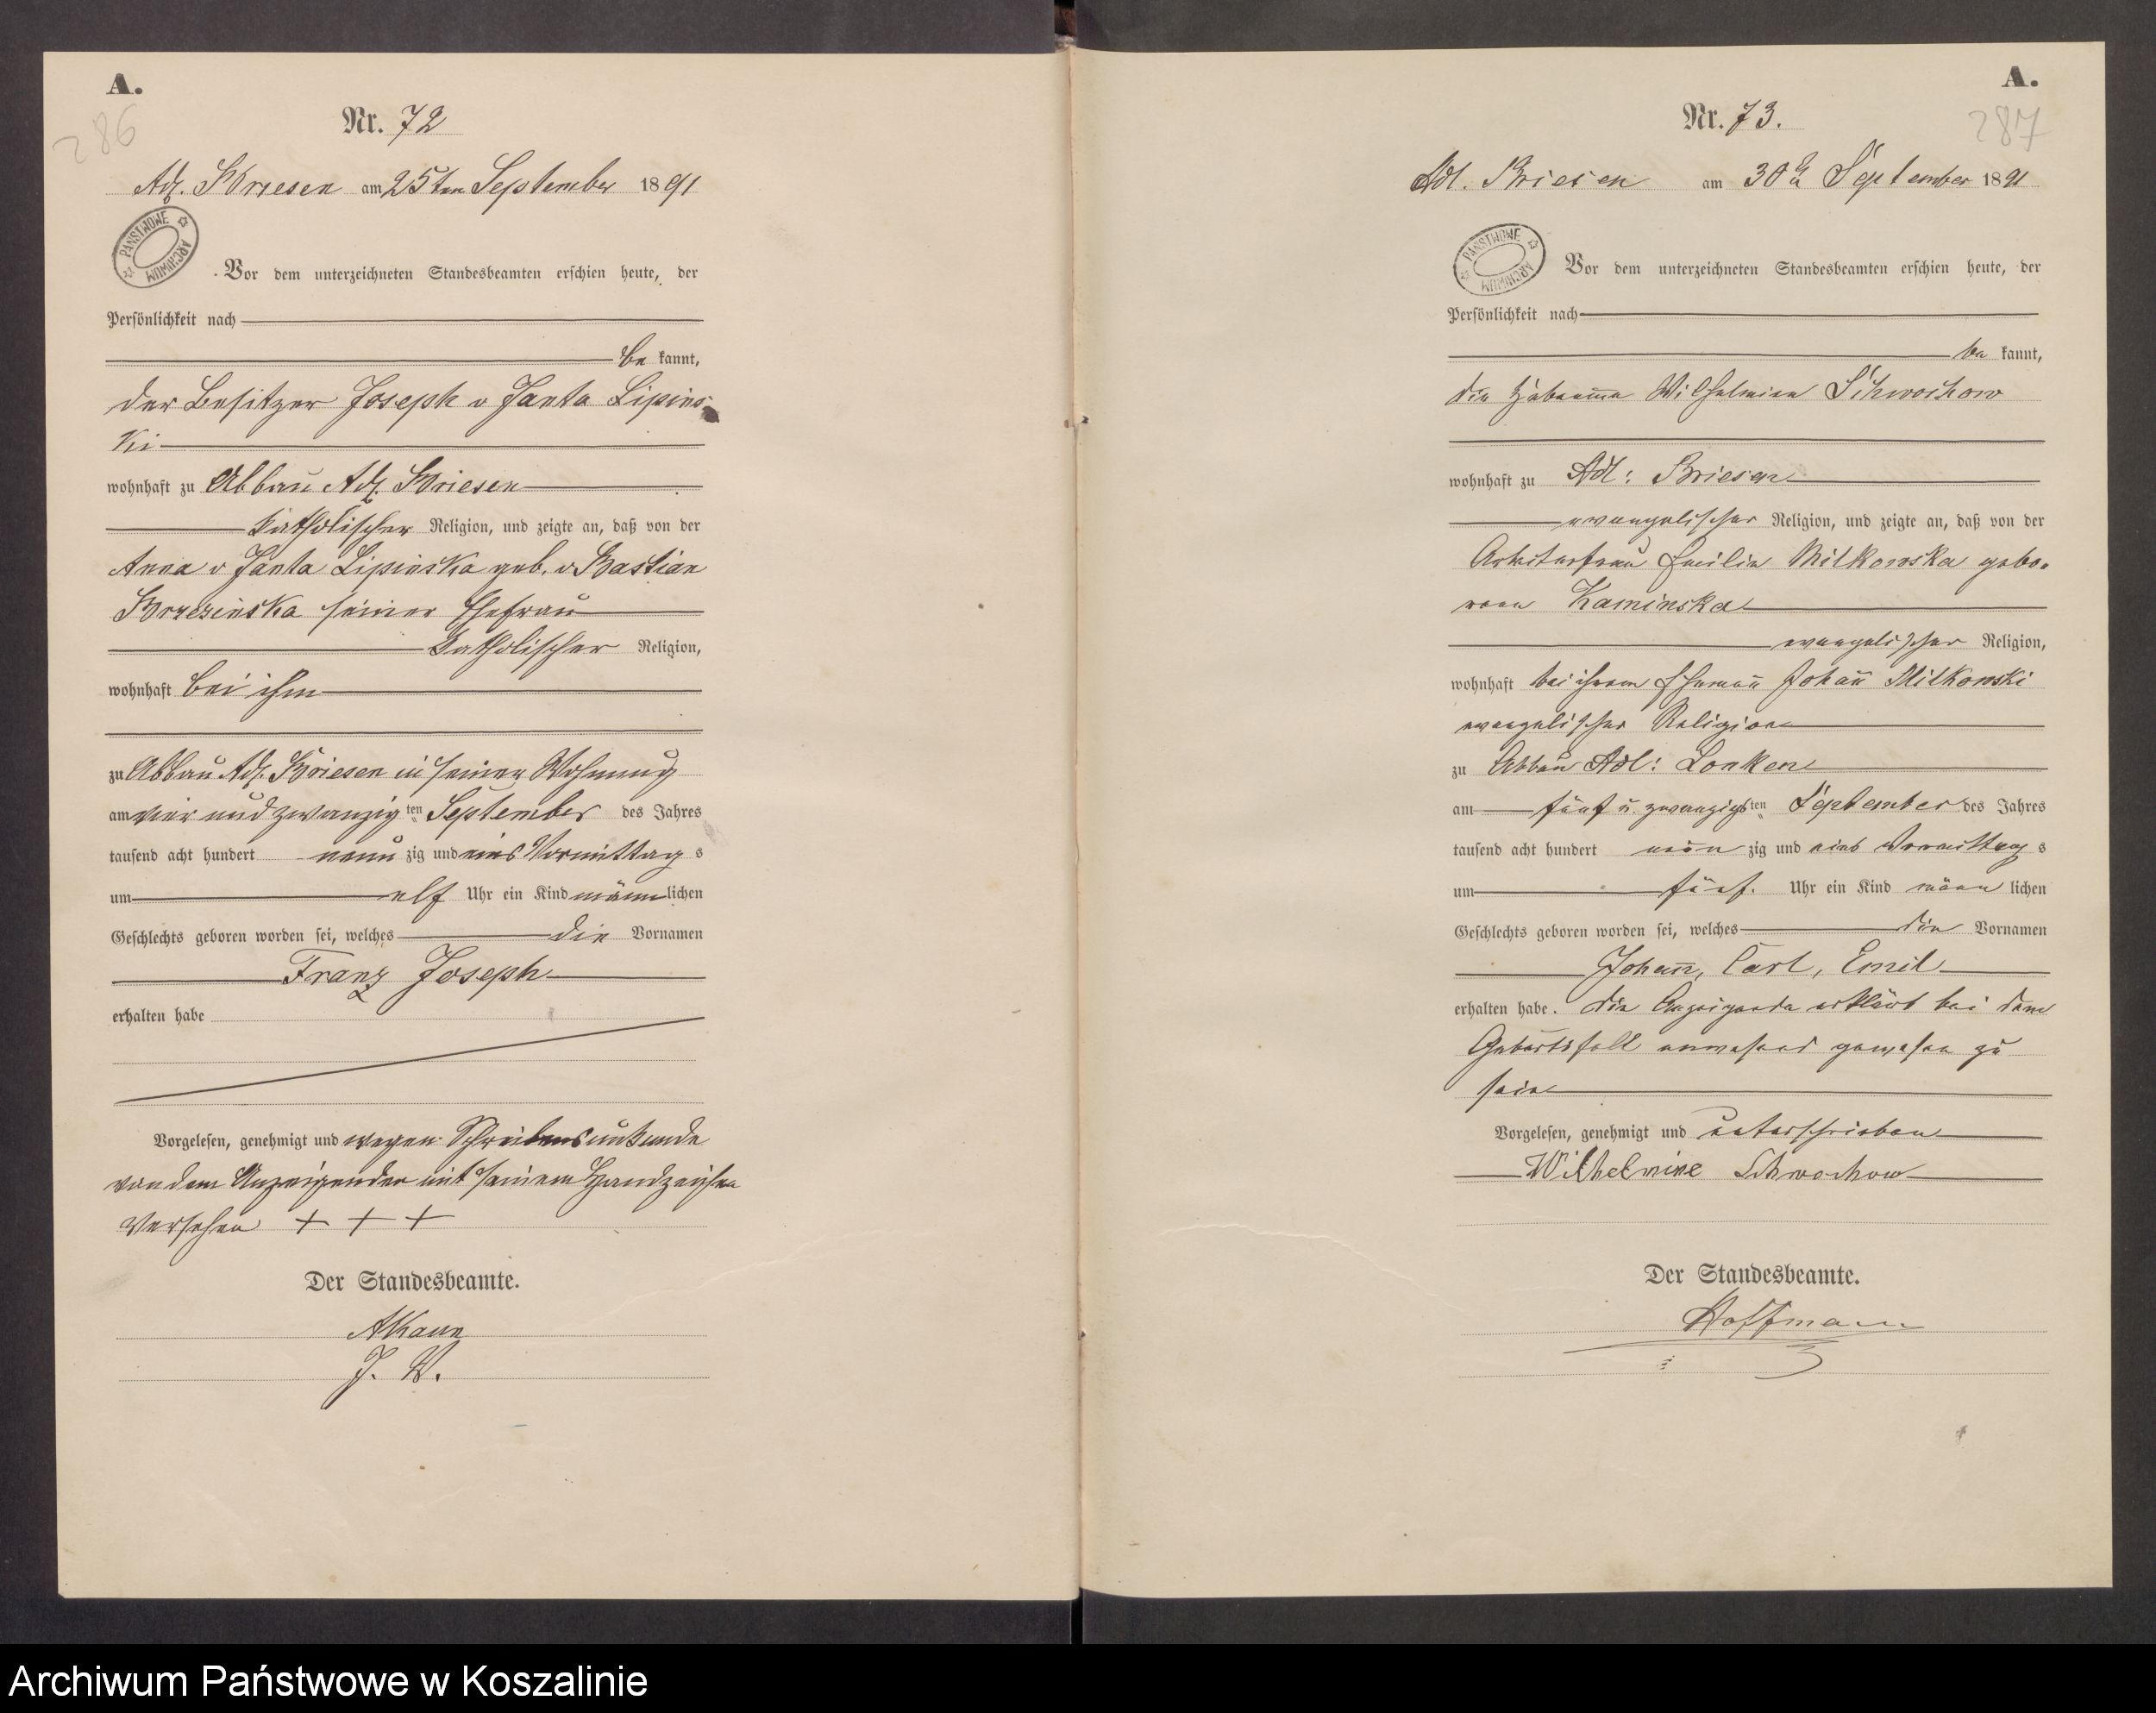 A.
286
Nr. 72
Adl. Briesen am 25ten September 1891
PAŃSTWOWE ARCHIWUM
Vor dem unterzeichneten Standesbeamten erschien heute, der
Persönlichkeit nach
be kannt,
der Besitzer Joseph v Janta Lipins-
ki
wohnhaft zu Abbau Adl. Briesen
katholischer Religion, und zeigte an, daß von der
Anna v Janta Lipinska geb. v Bastian
Brzezinska seiner Ehefrau
katholischer Religion,
wohnhaft bei ihm
zu Abbau Adl. Briesen in seiner Wohnung
am vier und zwanzig ten September des Jahres
tausend acht hundert neun zig und eins Vormittag s
um elf Uhr ein Kind männ lichen
Geschlechts geboren worden sei, welches die Vornamen
Franz Joseph
erhalten habe
Vorgelesen, genehmigt und wegen Schreibensunkunde
von dem Anzeigenden mit seinem Handzeichen
versehen + + +
Der Standesbeamte.
J. V.
A.
287
Nr. 73.
Adl. Briesen am 30 September 1891
PAŃSTWOWE ARCHIWUM
Vor dem unterzeichneten Standesbeamten erschien heute, der
Persönlichkeit nach
be kannt,
die Hebamme Wilhelmine Schwochow
wohnhaft zu Adl: Briesen
evangelischer Religion, und zeigte an, daß von der
Arbeiterfrau Emilie Milkowska gebo-
rene Kaminska
evangelischer Religion,
wohnhaft bei ihrem Ehemañ Johañ Milkowski
evangelischer Religion
zu Abbau Adl: Lonken
am fünf u. zwanzigsten September des Jahres
tausend acht hundert neun zig und eins Vormittag s
um fünf. Uhr ein Kind männ lichen
Geschlechts geboren worden sei, welches die Vornamen
Johañ, Carl, Emil
erhalten habe. Die Anzeigende erklärt bei dem
Geburtsfall anwesend gewesen zu
sein
Vorgelesen, genehmigt und unterschrieben
Wilhelmine Schwochow
Der Standesbeamte.
Hoffmann
Archiwum Państwowe w Koszalinie